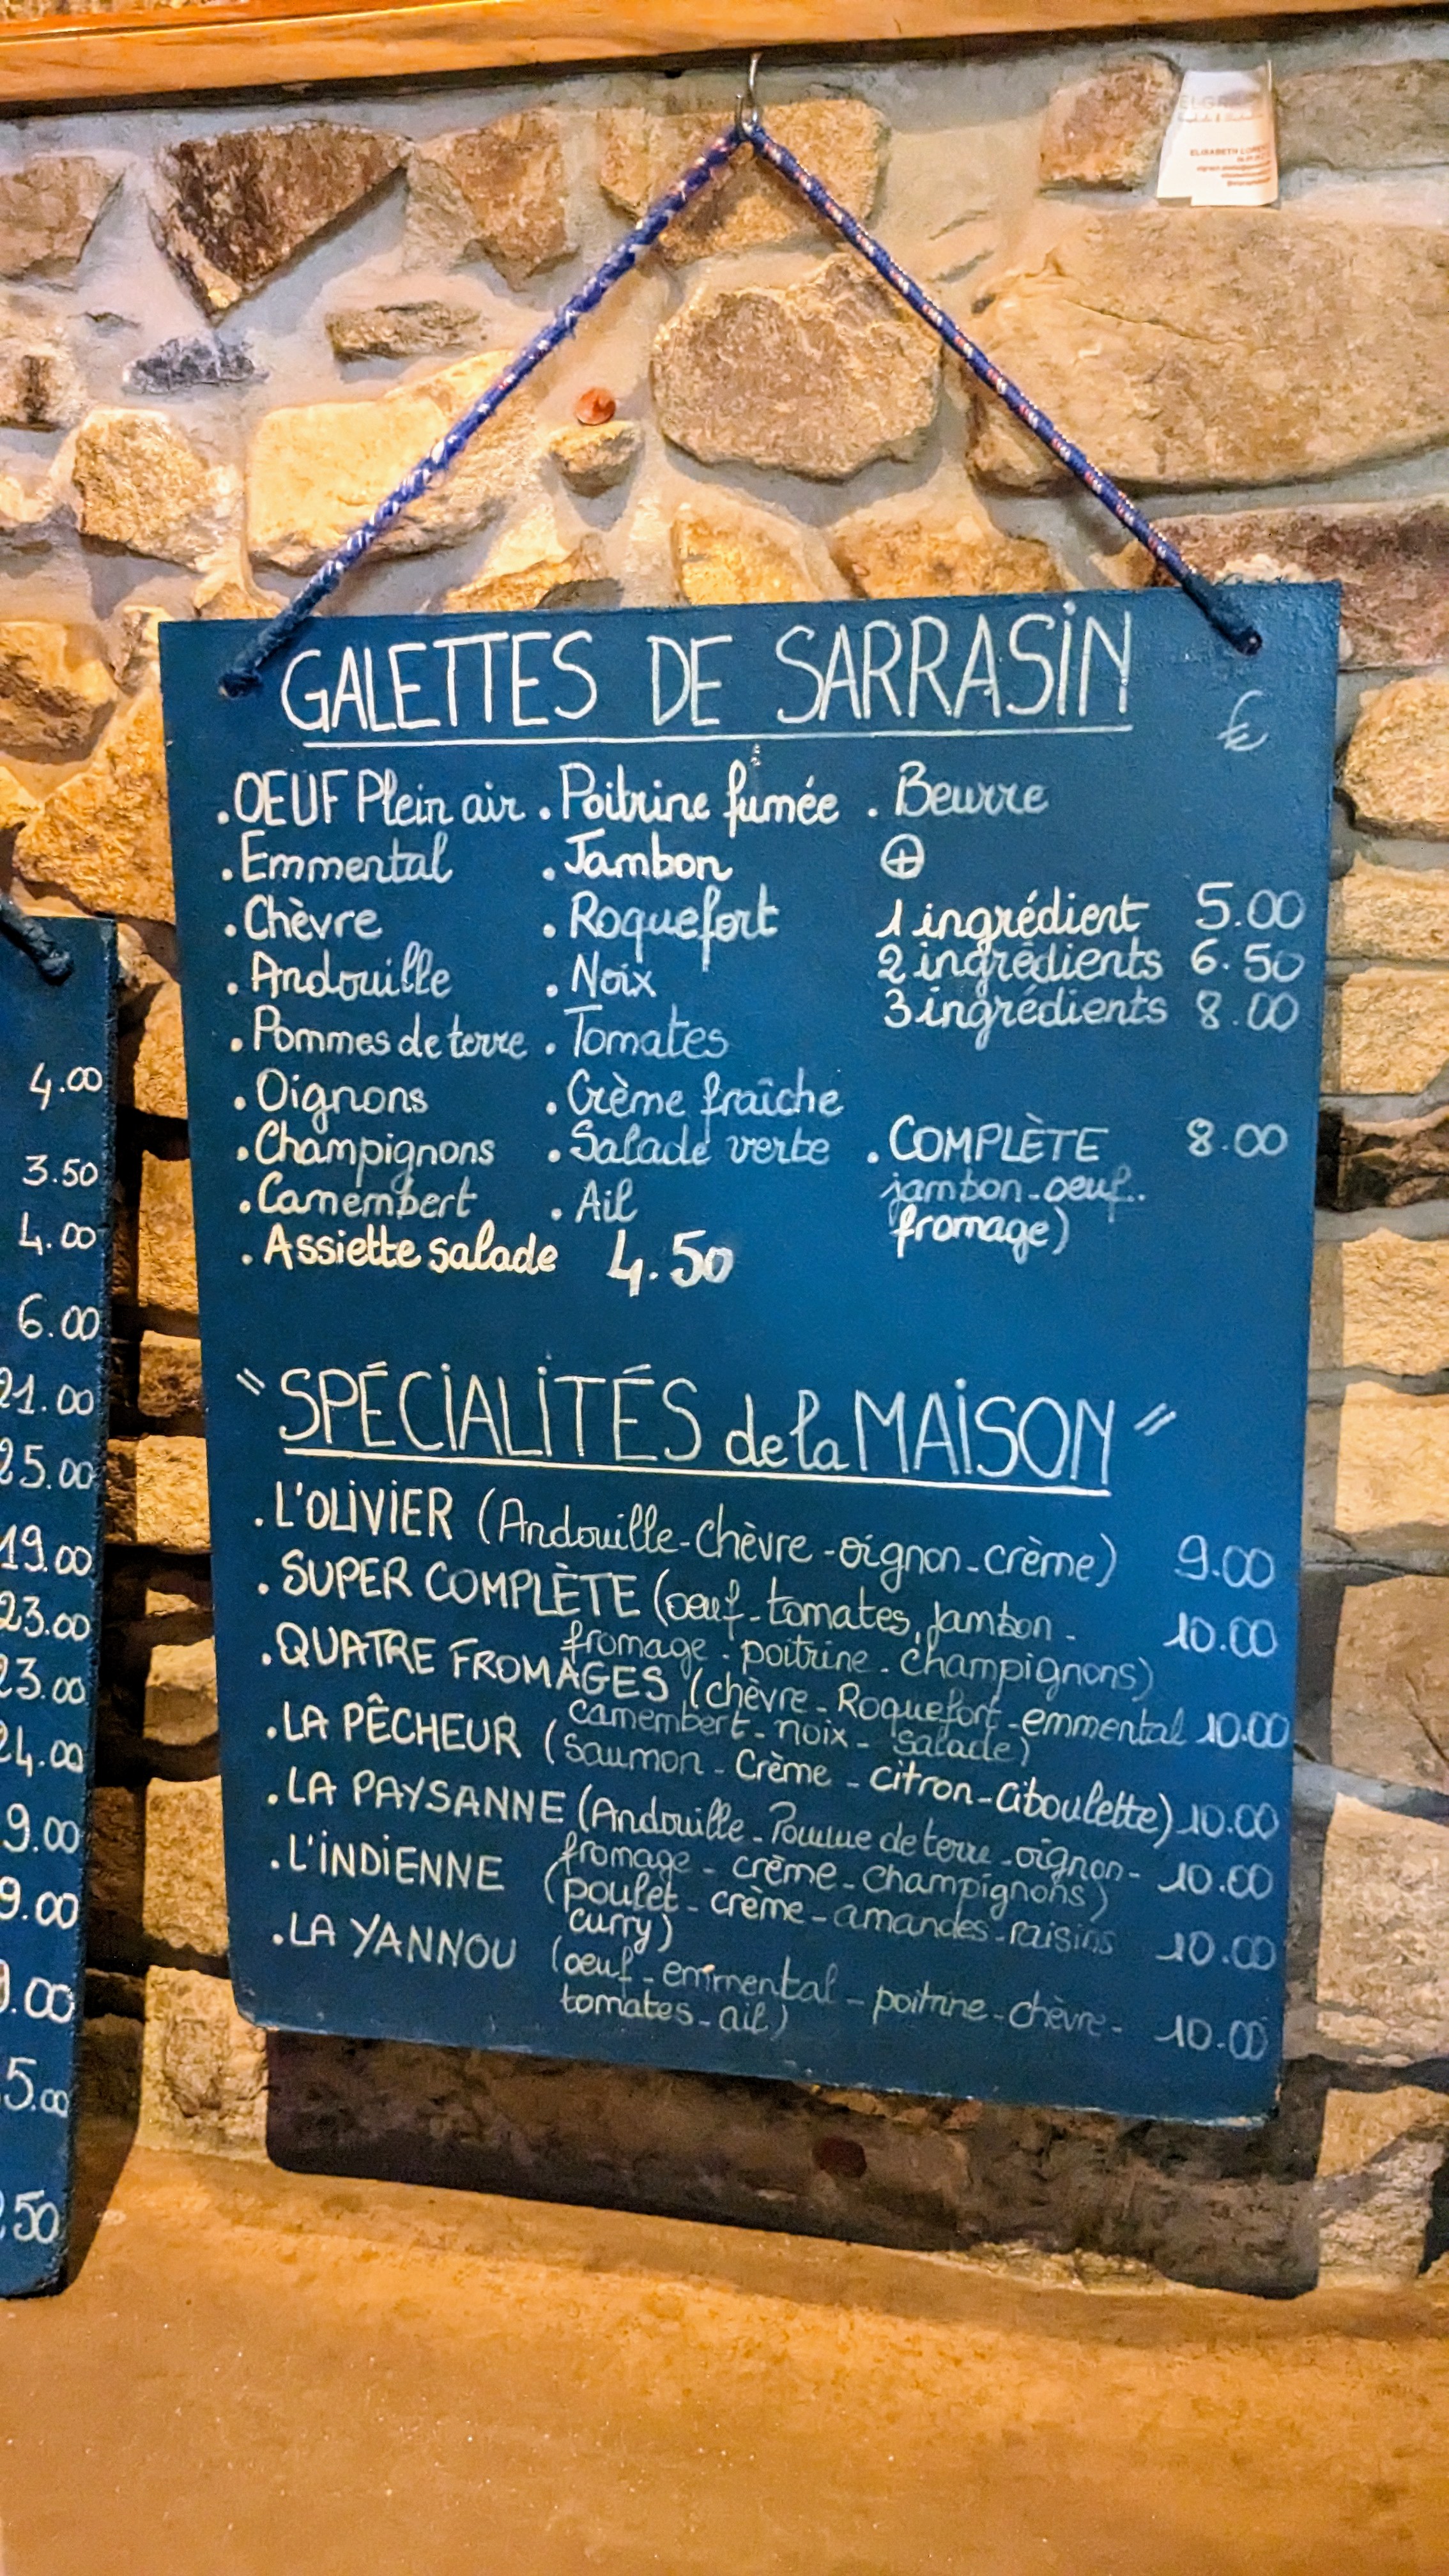 GALETTES DE SARRASIN
€
. OEUF Plein air . Poitrine fumée . Beurre
. Emmental . Jambon ⊕
. Chèvre . Roquefort 1 ingrédient 5.00
. Andouille . Noix 2 ingrédients 6.50
. Pommes de terre . Tomates 3 ingrédients 8.00
. Oignons . Crème fraîche
. Champignons . Salade verte . COMPLÈTE 8.00
. Camembert . Ail jambon-oeuf-
fromage)
. Assiette salade 4.50
" SPÉCIALITÉS de la MAISON "
. L'OLIVIER (Andouille-chèvre-oignon-crème) 9.00
. SUPER COMPLÈTE (oeuf-tomates, jambon- 10.00
fromage-poitrine-champignons)
. QUATRE FROMAGES (chèvre-Roquefort-emmental 10.00
camembert-noix-salade)
. LA PÊCHEUR (Saumon-Crème-citron-Ciboulette) 10.00
. LA PAYSANNE (Andouille-Pomme de terre-oignon- 10.00
fromage-crème-champignons)
. L'INDIENNE (poulet-crème-amandes-raisins 10.00
curry)
. LA YANNOU (oeuf-emmental-poitrine-chèvre- 10.00
tomates-ail)
4.00
3.50
4.00
6.00
21.00
25.00
19.00
23.00
23.00
24.00
9.00
9.00
9.00
5.00
50
ELISABETH